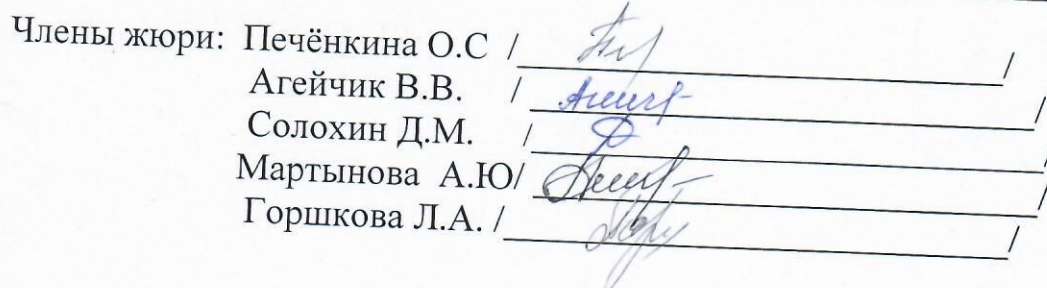 Члены жюри: Печёнкина О.С /____________/
Агейчик В.В. /____________/
Солохин Д.М. /____________/
Мартынова А.Ю/____________/
Горшкова Л.А. /____________/